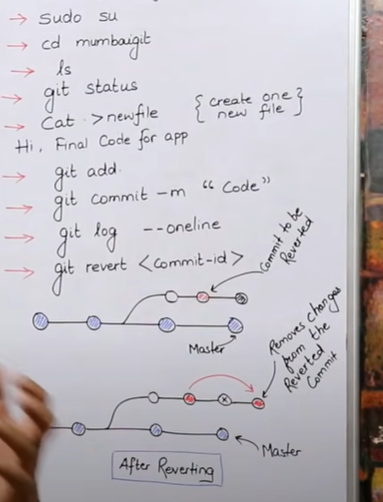 → Sudo su
→ cd mumbaigit
→ ls
→ git status
→ Cat >newfile { create one new file }
Hi, Final Code for app
→ git add.
→ git commit -m "Code"
→ git log --oneline
→ git revert <commit-id>
Commit to be
Reverted
Master
Removes changes
from the
Reverted
Commit
Master
After Reverting